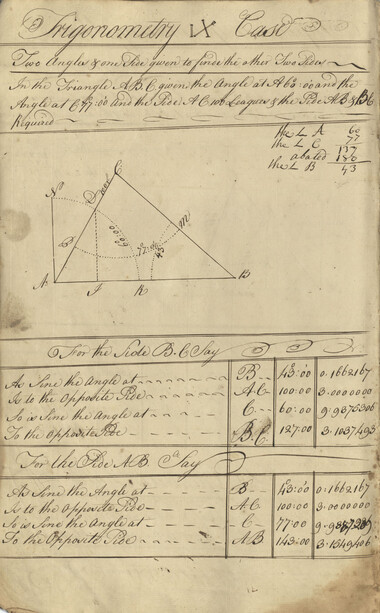 Trigonometry IX Case
Two Angles & one Side given to finde the other Two Sides
In the Triangle A B C given the Angle at A 60:00 and the
Angle at C 77:00 and the Side A C 100 Leagues & the Side A B & B C
Required
the L A 60
the L C 77
137
abated 180
the L B 43
N
C
60:00
M
77:00
43
A
K
B
For the Side B.C Say
As Sine the Angle at B 43:00 0.1662167
Is to the Opposite Side A C 100:00 3.0000000
So is Sine the Angle at C 60:00 9.9375306
To the Opposite Side B.C 127.00 3.1037493
For the Side A B Say
As Sine the Angle at B 43:00 0.1662167
Is to the Opposite Side A C 100:00 3.0000000
So is Sine the Angle at C 77:00
To the Opposite Side A B 143:00 3.1549406